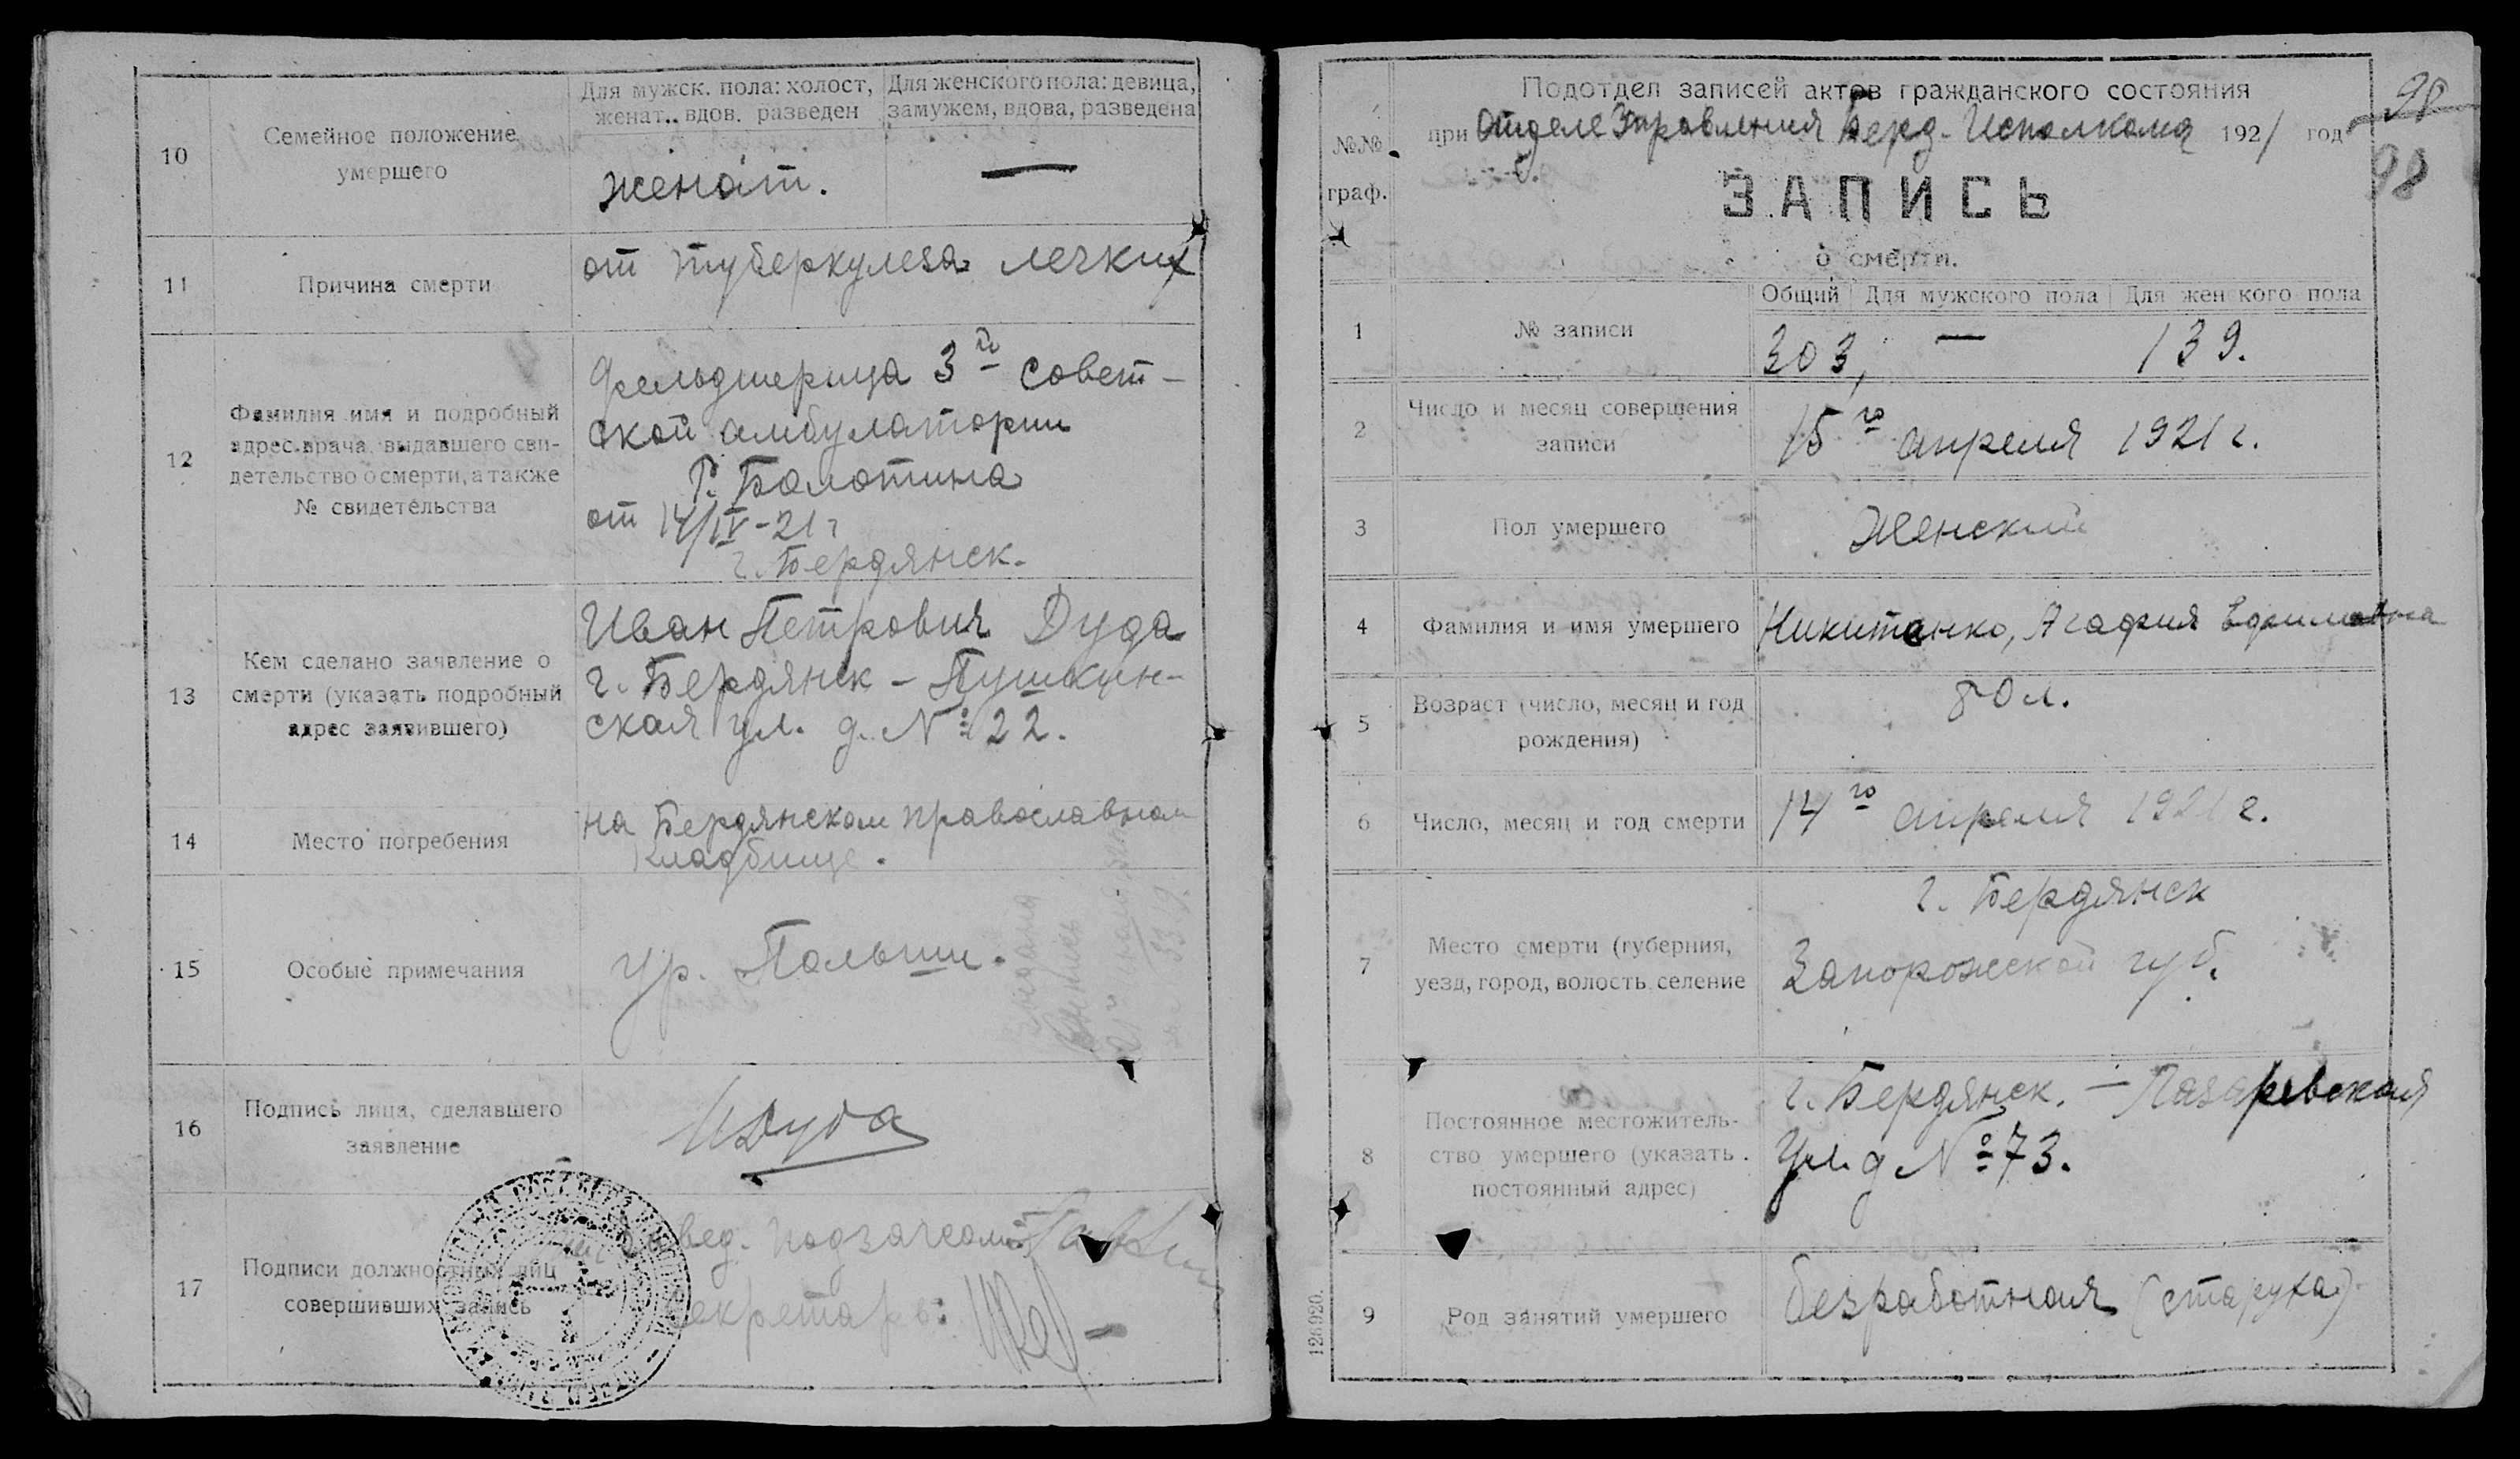 10
Семейное положение
умершего
Для мужск. пола: холост,
женат, вдов, разведен
Для женского пола: девица,
замужем, вдова, разведена
женат.
—
11
Причина смерти
от туберкулеза легких
12
Фамилия имя и подробный
адрес врача, выдавшего сви-
детельство о смерти, а также
№ свидетельства
Фельдшерица 3й Совет-
ской амбулатории
Р. Болотина
от 14/IV-21 г
г. Бердянск.
13
Кем сделано заявление о
смерти (указать подробный
адрес заявившего)
Иван Петрович Дуда
г. Бердянск – Пушкин-
ская ул. д. № 22.
14
Место погребения
на Бердянском православном
кладбище.
15
Особые примечания
ур. Польши.
16
Подпись лица, сделавшего
заявление
ИДуда
17
Подписи должностных лиц
совершивших запись
Завед. подзагсом:
Секретарь:
98
98
№№
граф.
Подотдел записей актов гражданского состояния
при Отделе Управления Берд. Исполкома 1921 год
ЗАПИСЬ
о смерти.
Общий Для мужского пола Для женского пола
1
№ записи
303, — 139.
2
Число и месяц совершения
записи
15го апреля 1921 г.
3
Пол умершего
Женский
4
Фамилия и имя умершего
Никитенко, Агафия
5
Возраст (число, месяц и год
рождения)
80 л.
6
Число, месяц и год смерти
14го апреля 1921 г.
7
Место смерти (губерния,
уезд, город, волость, селение
г. Бердянск
Запорожской губ.
8
Постоянное местожитель-
ство умершего (указать
постоянный адрес)
г. Бердянск. – Лазаревская
ул. д № 73.
9
Род занятий умершего
безработная (старуха)
126920.